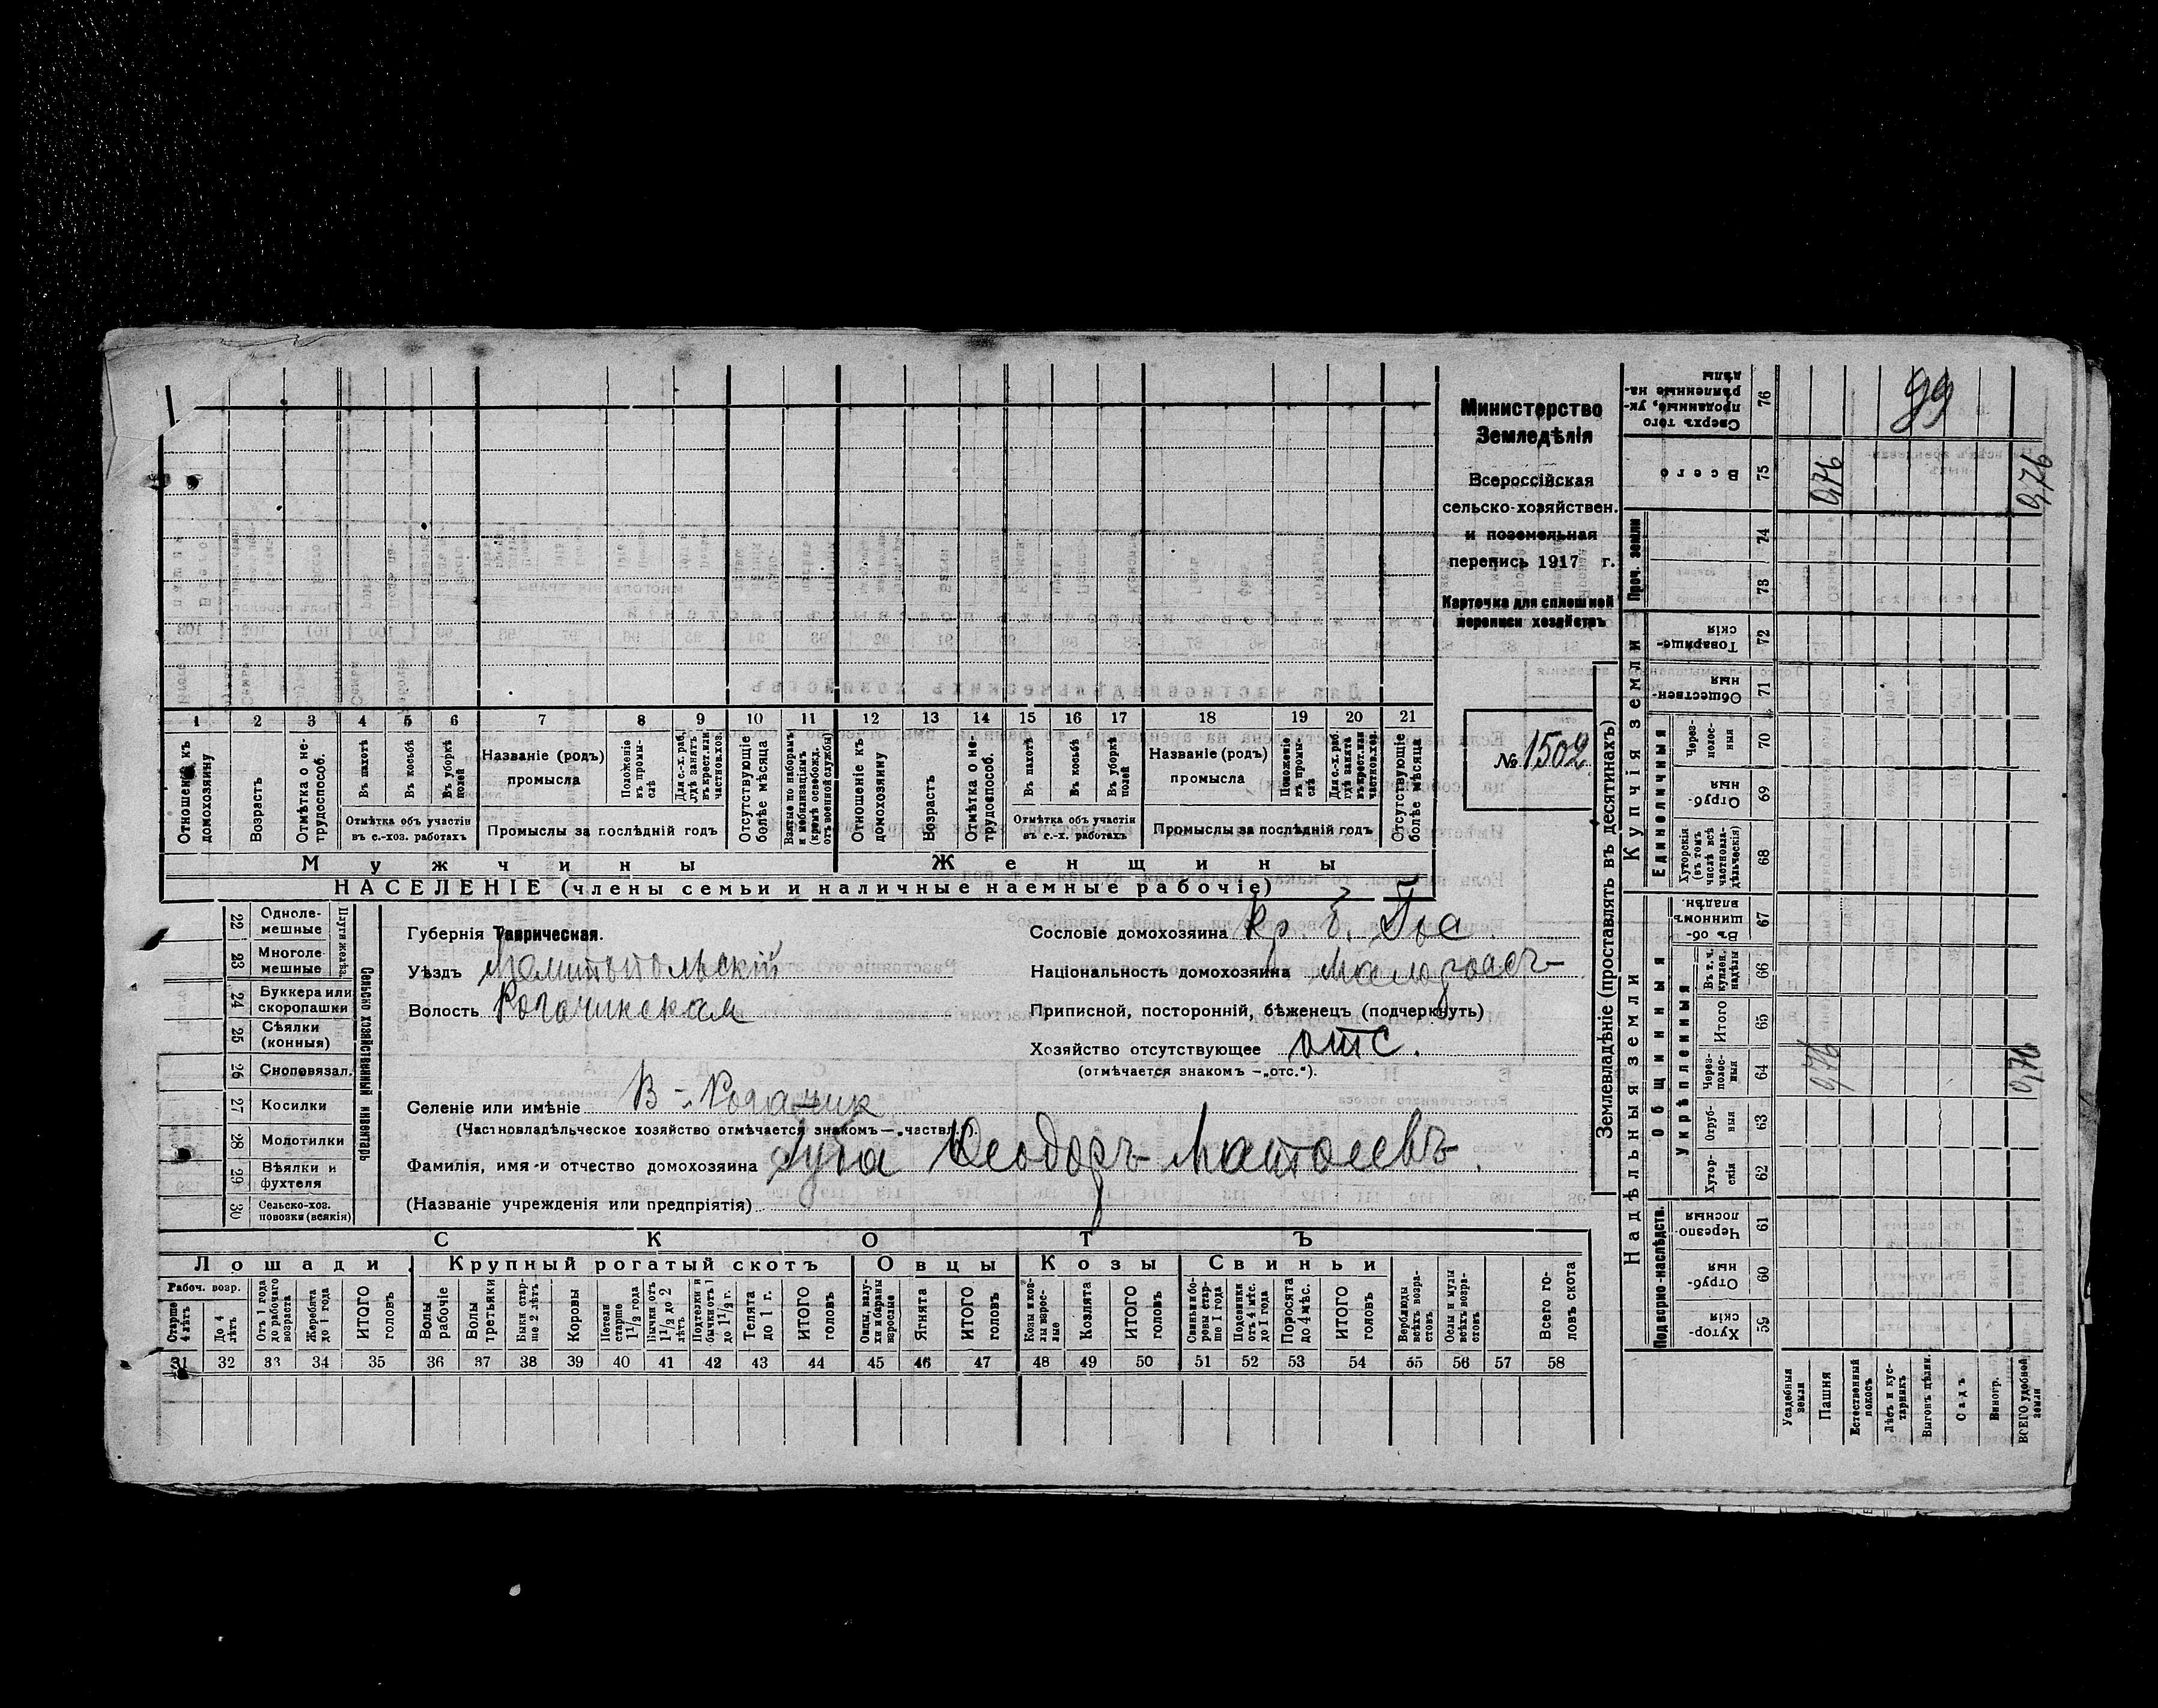 Министерство
Земледѣлія
Всероссійская
сельско-хозяйствен.
и поземельная
перепись 1917 г.
Карточка для сплошной
переписи хозяйствъ
№ 1502
99
1 2 3 4 5 6 7 8 9 10 11 12 13 14 15 16 17 18 19 20 21
Отношеніе къ домохозяину
Возрастъ
Отмѣтка о не-трудоспособ.
Въ пахотѣ
Въ косьбѣ
Въ уборкѣ полей
Отмѣтка объ участіи въ с.-хоз. работахъ
Названіе (родъ) промысла
Положеніе въ промы-слѣ
Для с.-х. раб. гдѣ занятъ въ крест. или частнов. хоз.
Промыслы за послѣдній годъ
Отсутствующіе болѣе мѣсяца
Взятые по наборамъ и мобилизаціямъ (кромѣ освобожд. отъ военной службы)
Отношеніе къ домохозяину
Возрастъ
Отмѣтка о не-трудоспособ.
Въ пахотѣ
Въ косьбѣ
Въ уборкѣ полей
Отмѣтка объ участіи въ с.-х. работахъ
Названіе (родъ) промысла
Положеніе въ промы-слѣ
Для с.-х. раб. гдѣ занята въ крест. или частнов. хоз.
Промыслы за послѣдній годъ
Отсутствующіе болѣе мѣсяца
Мужчины
Женщины
НАСЕЛЕНІЕ (члены семьи и наличные наемные рабочіе)
Сельско хозяйственный инвентарь
22 Одноле-мешные
23 Многоле-мешные
24 Буккера или скоропашки
25 Сѣялки (конныя)
26 Сноповязал.
27 Косилки
28 Молотилки
29 Вѣялки и фухтеля
30 Сельско-хоз. повозки (всякія)
Губернія Таврическая.
Уѣздъ Мелитопольскій
Волость Рогачикская
Селеніе или имѣніе В-Рогачик
(Частновладѣльческое хозяйство отмѣчается знакомъ — „частвл.“).
Фамилія, имя и отчество домохозяина Ѳеодоръ
(Названіе учрежденія или предпріятія)
Сословіе домохозяина Кр.
Національность домохозяина Малоросъ
Приписной, посторонній, бѣженецъ (подчеркнуть)
Хозяйство отсутствующее отс.
(отмѣчается знакомъ —„отс.“).
СКОТЪ
Лошади
Крупный рогатый скотъ
Овцы
Козы
Свиньи
Рабоч. возр.
Старше 4 лѣтъ
До 4 лѣтъ
Отъ 1 года до рабочаго возраста
Жеребята до 1 года
ИТОГО головъ
Волы рабочіе
Волы третьяки
Быки стар-ше 2 лѣтъ
Коровы
Нетели старше 1 1/2 года
Бычки отъ 1 1/2 до 2 лѣтъ
Подтелки и бычки отъ 1 до 1 1/2 г.
Телята до 1 г.
ИТОГО головъ
Овцы, валу-хи и бараны взрослые
Ягнята
ИТОГО головъ
Козы и коз-лы взрос-лые
Козлята
ИТОГО головъ
Свиньи и бо-ровы стар-ше 1 года
Подсвинки отъ 4 мѣс. до 1 года
Поросята до 4 мѣс.
ИТОГО головъ
Верблюды всѣхъ возра-стовъ
Ослы и мулы всѣхъ возра-стовъ
Всего го-ловъ скота
31 32 33 34 35 36 37 38 39 40 41 42 43 44 45 46 47 48 49 50 51 52 53 54 55 56 57 58
Землевладѣніе (проставлять въ десятинахъ)
Надѣльныя земли
Купчія земли
Подворно-наслѣдств.
Общинныя
Укрѣпленныя
Единоличныя
Проч. земли
Хутор-скія 59
Отруб-ныя 60
Черезпо-лосныя 61
Хутор-скія 62
Отруб-ныя 63
Через-полос-ныя 64
Итого 65
Въ т. ч. куплен. надѣлы 66
Въ об-щинномъ владѣн. 67
Хуторскія (въ томъ числѣ всѣ частновла-дѣльческія) 68
Отруб-ныя 69
Через-полос-ныя 70
Обществен-ныя 71
Товарище-скія 72
73
74
Всего 75
Сверхъ того проданные, ук-рѣпленные на-дѣлы 76
Усадебныя земли
Пашня
Естественный покосъ
Лѣсъ и кус-тарникъ
Выгонъ цѣлин.
Садъ
Виногр.
ВСЕГО удобной земли
9,76
9,76
9,76
9,76